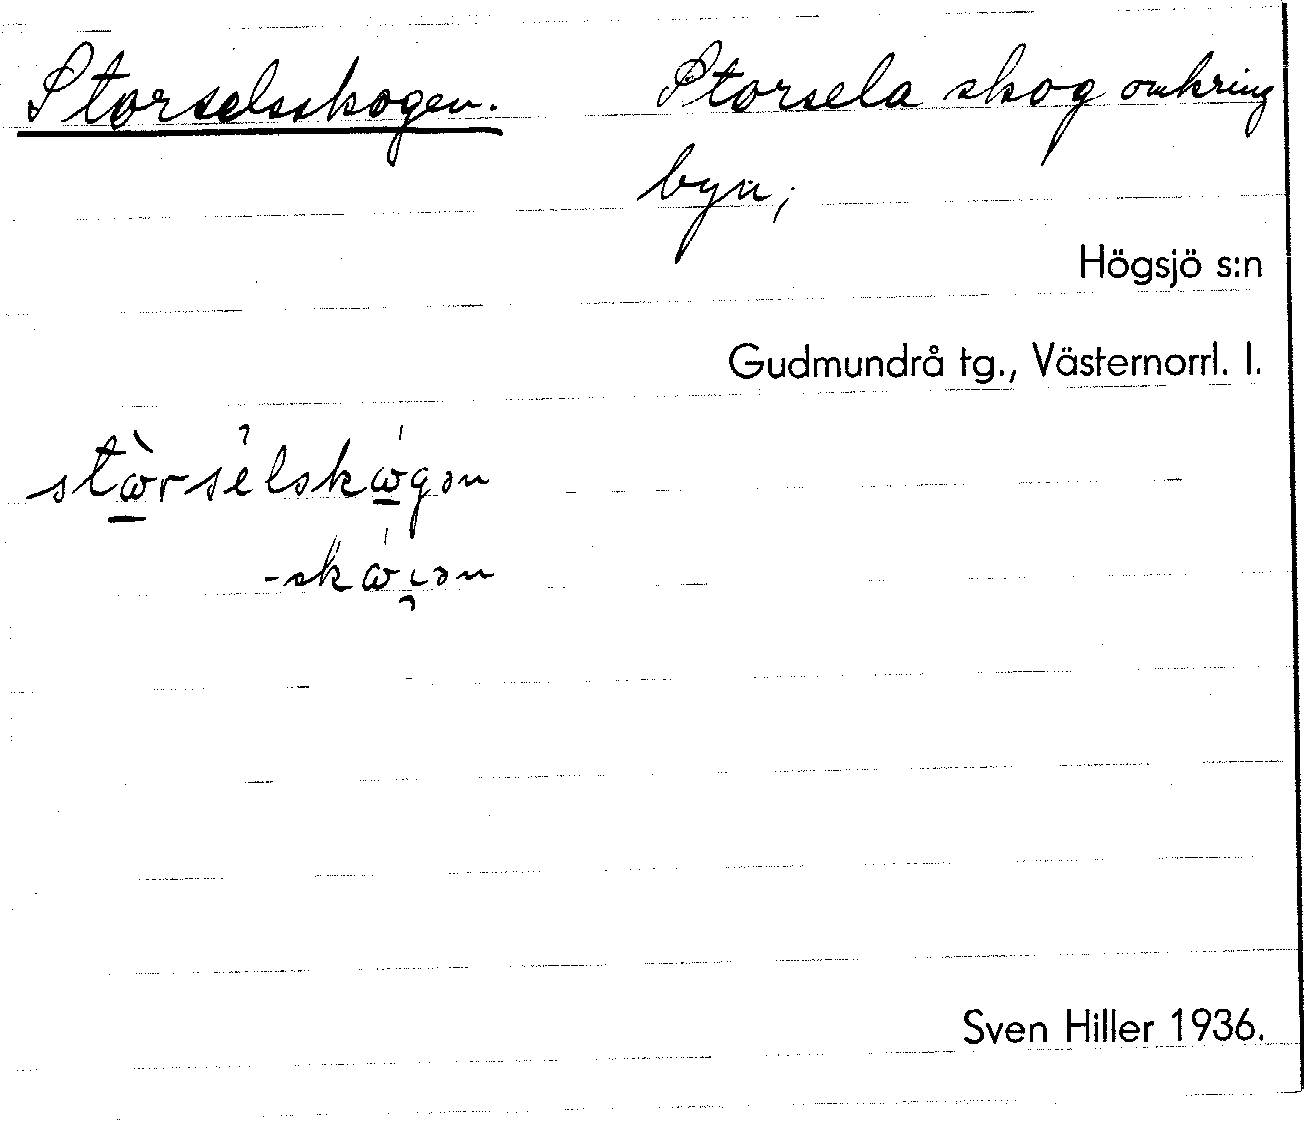 Storselsskogen. Storsela skog omkring
byn;
Högsjö s:n
Gudmundrå tg., Västernorrl. l.
Sven Hiller 1936.